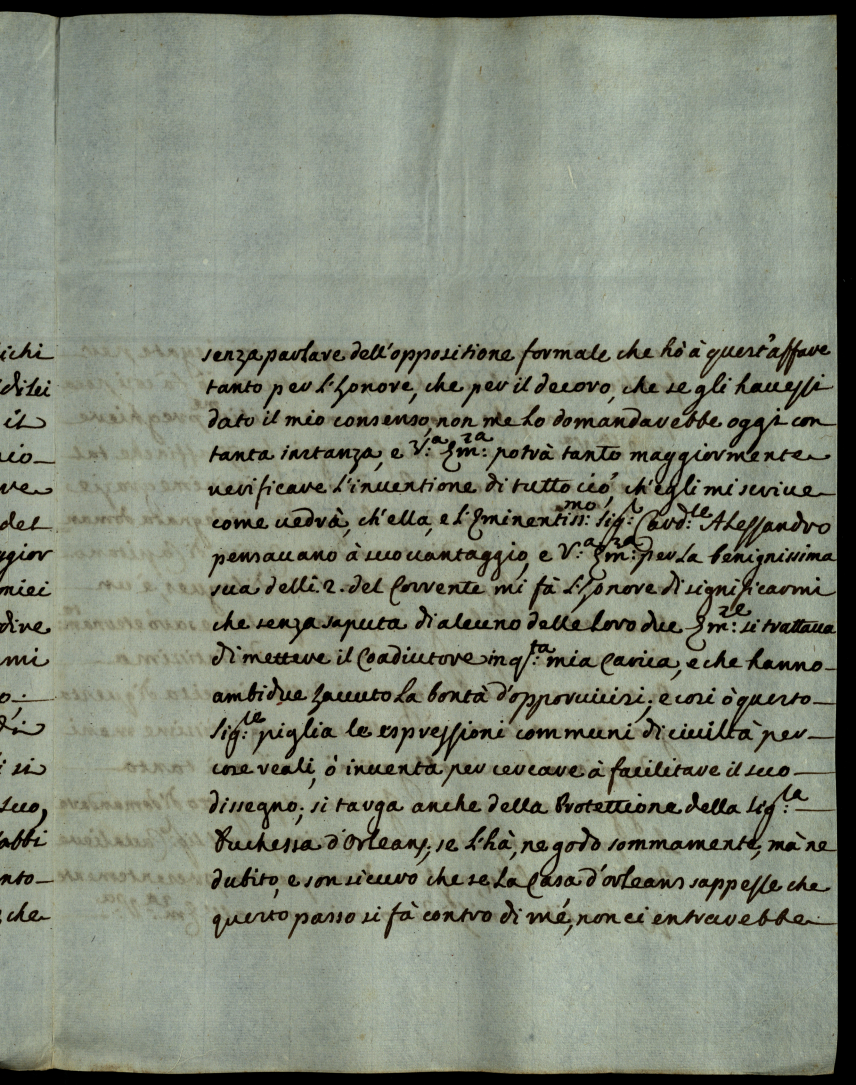 senza parlare dell'oppositione formale che hò à quest'affare
tanto per l'honore, che per il decoro, che se gli havessi
dato il mio consenso, non me lo domandarebbe oggi con
tanta instanza, e V.ª Em.za potrà tanto maggiormente
verificare l'inventione di tutto ciò, ch'egli mi scrive
come vedrà, ch'ella, e l'Eminentiss.mo Sig.r Card.le Alessandro
pensavano à suo vantaggio, e V.ª Em.za per la benignissima
sua delli 2. del Corrente mi fà l'honore di significarmi
che senza saputa di alcuno delle loro due Em.ze si trattava
di mettere il Coadiutore in q.sta mia Carica, e che hanno
ambidue havuto la bontà d'opporvisi; e così ò questo
Sig.le piglia le espressioni communi di civiltà per
cose reali, ò inventa per cercare à facilitare il suo
dissegno; si targa anche della Protettione della Sig.la
Duchessa d'Orleans; se l'hà, ne godo sommamente, mà ne
dubito, e son sicuro che se la Casa d'Orleans sappesse che
questo passo si fà contro di mé, non ci entrarebbe
ichi
di lei
il
io
re
del
ggior
miei
dire
mi
o;
di
i si
suo,
abbi
nto
che